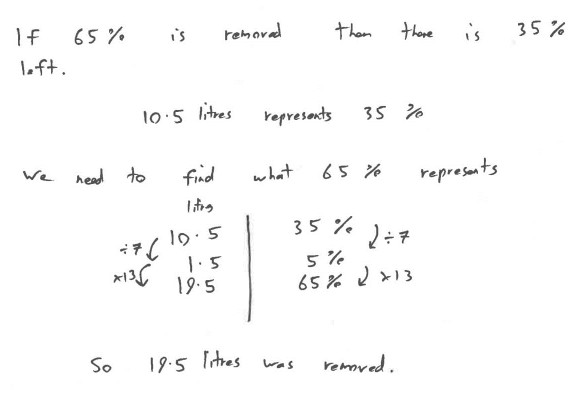 If 65% is removed then there is 35%
left.
10.5 litres represents 35%
We need to find what 65% represents
litres
10.5 35% ÷7
÷7 1.5 5%
×13 19.5 65% ×13
So 19.5 litres was removed.